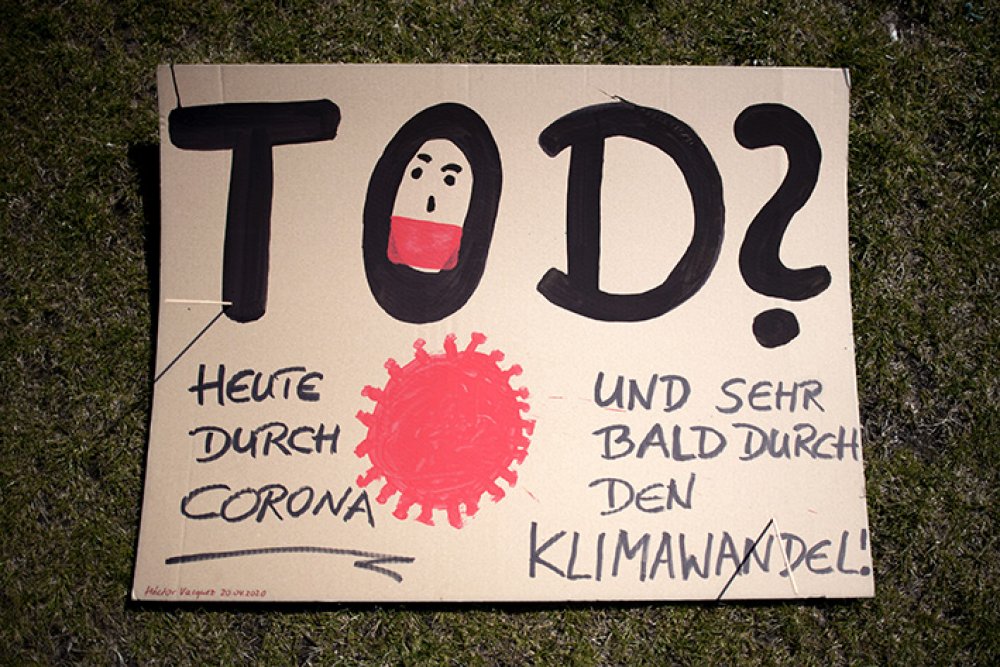 TOD?
HEUTE
DURCH
CORONA
UND SEHR
BALD DURCH
DEN
KLIMAWANDEL!
Héctor Vasquez 20.04.2020